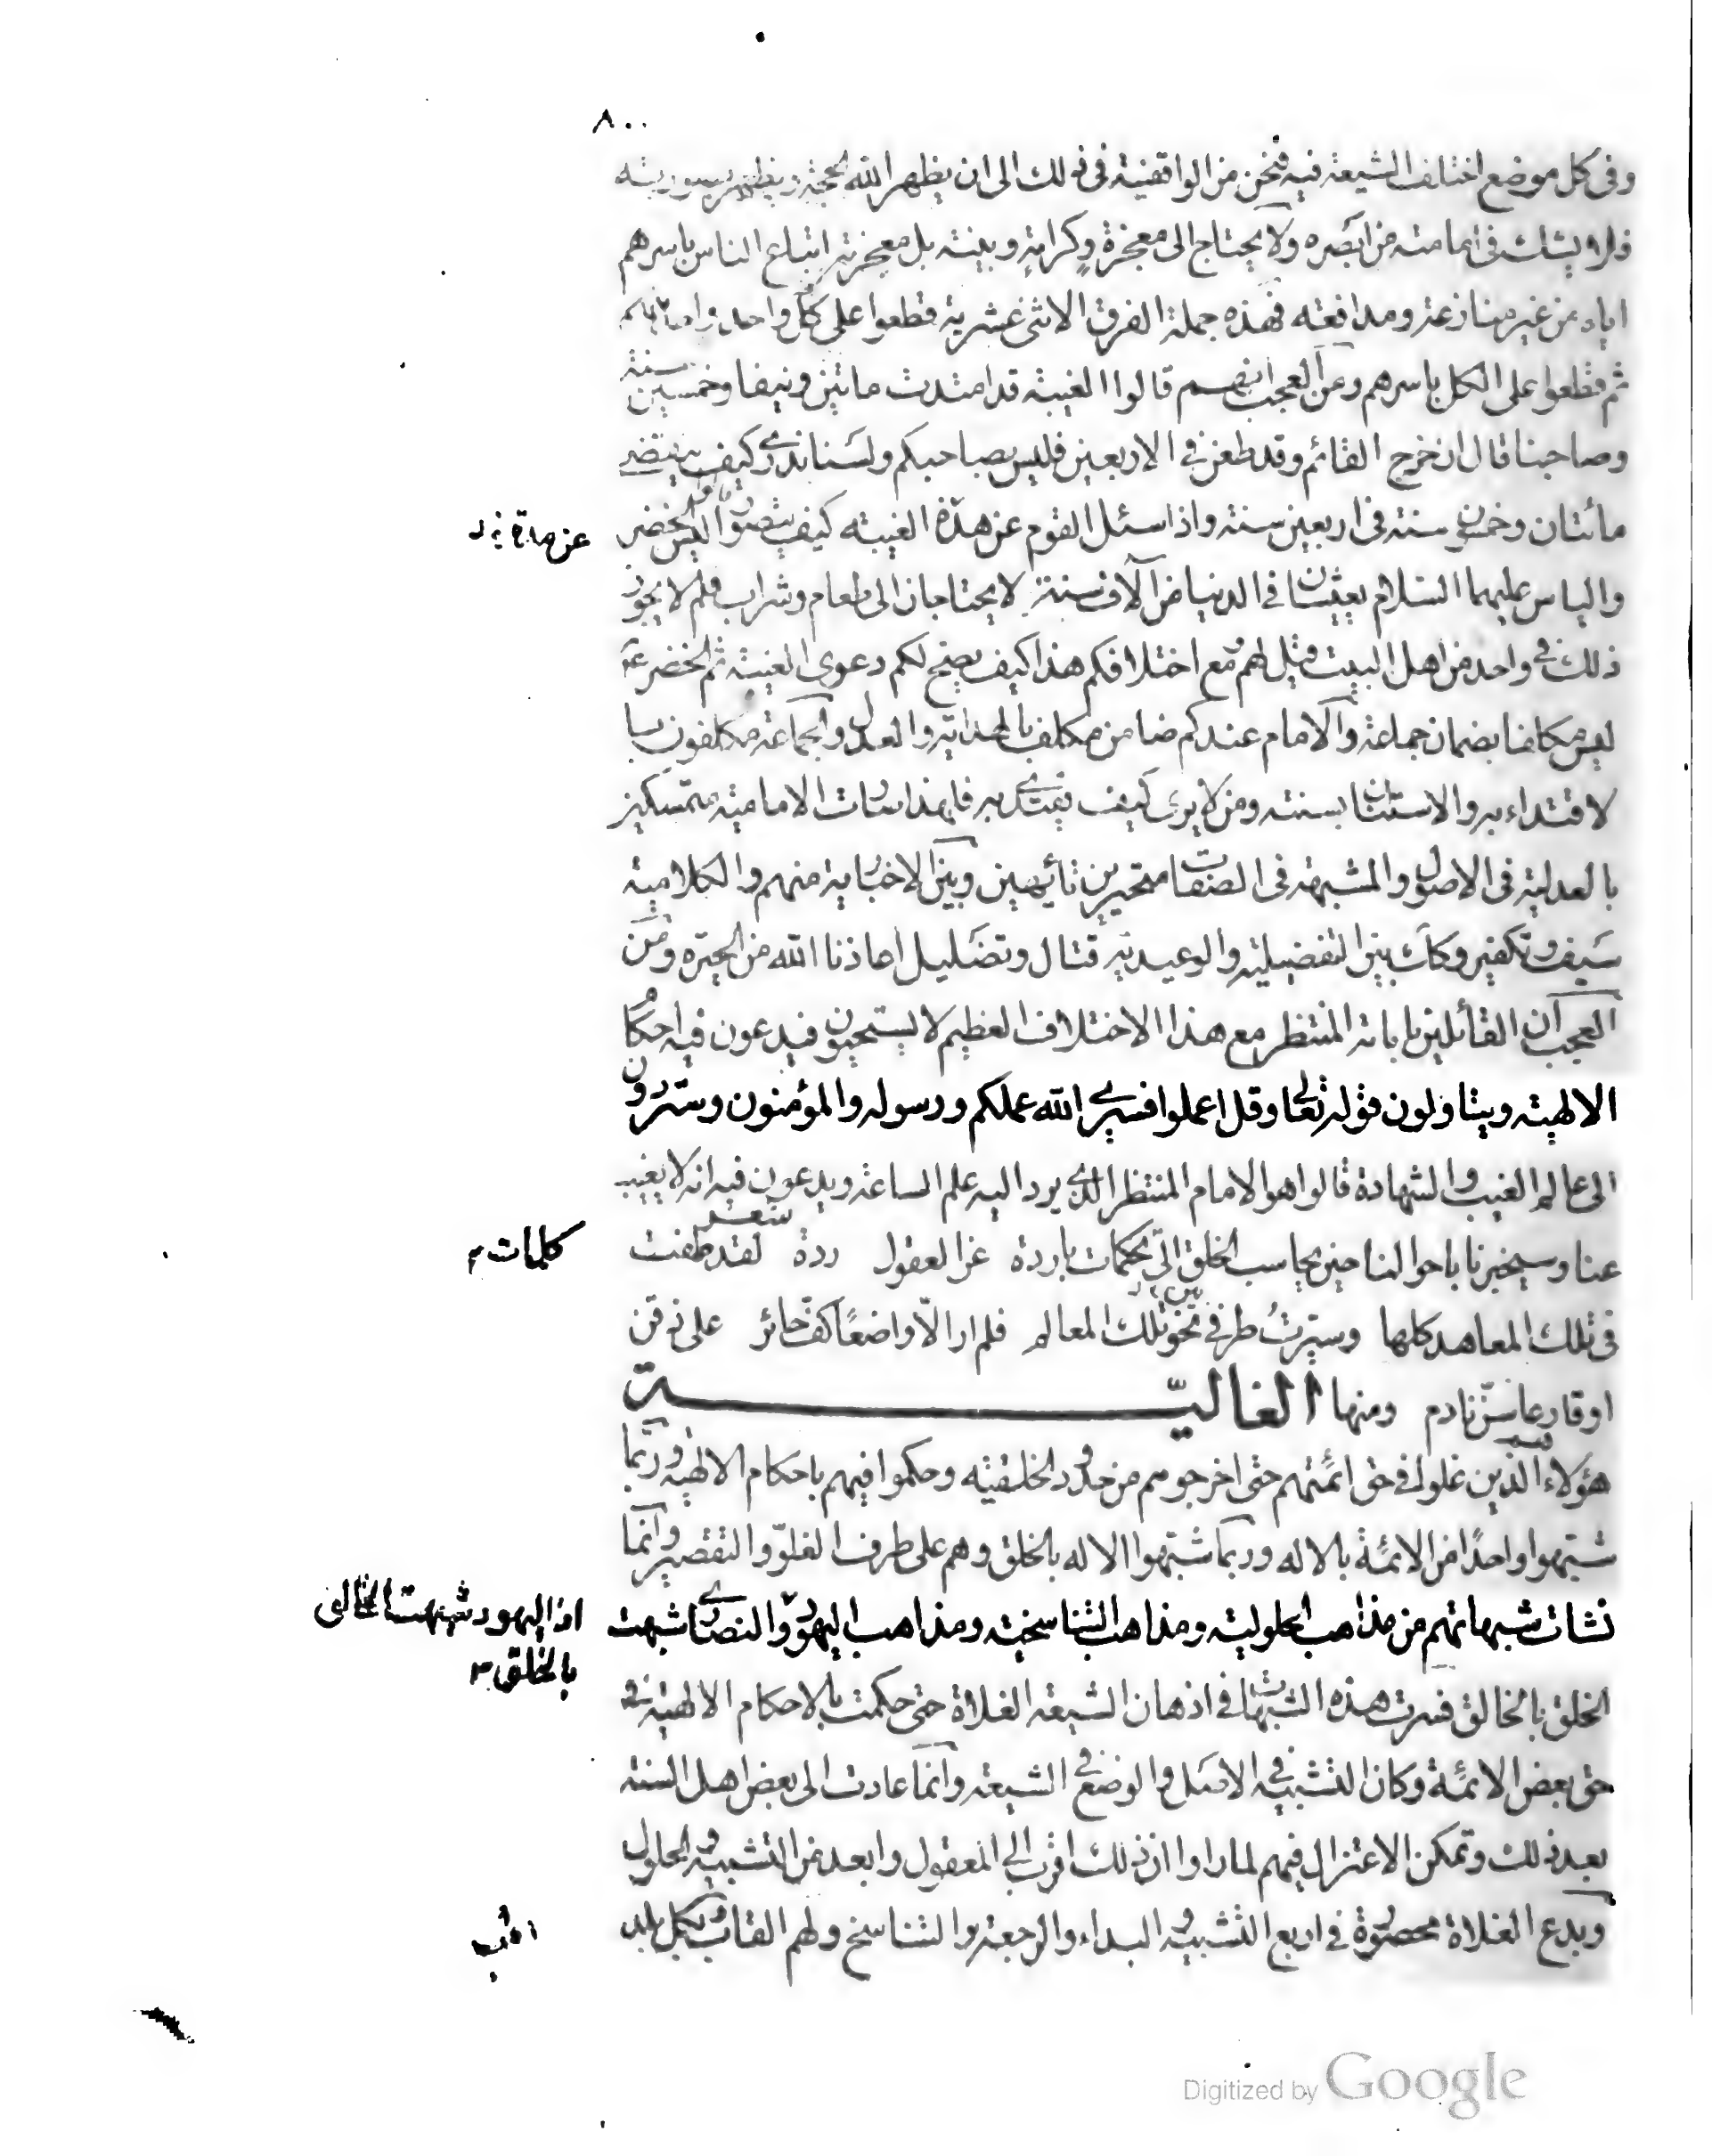 ٨٠٠
وفى كل موضع اختلف الشيعة فيه فنحن من الواقفية فى ذلك الى ان يظهر الله الحجة ويظهر بصورته
فلا يشك فى امامته من ابصره ولا يحتاج الى معجزة وكرامة وبينة بل معجزته اتباع الناس باسرهم
اياه من غير منازعة ومدافعة فهذه جملة الفرق الاثنى عشرية قطعوا على كل واحد واحد منهم
ثم قطعوا على الكل باسرهم ومن العجب انهم قالوا الغيبة قد امتدت مائتين ونيفا وخمسين سنة
وصاحبنا قال ان خرج القائم وقد طعن فى الاربعين فليس بصاحبكم ولسنا ندرى كيف ينقضى
مائتان وخمسون سنة فى اربعين سنة واذا سئل القوم عن هذة الغيبة كيف يتصور قالوا اليس الخضر
والياس عليهما السلام يعيشان فى الدنيا من آلاف سنة لا يحتاجان الى طعام وشراب فلم لا يجوز
ذلك فى واحد من اهل البيت قيل لهم ومع اختلافكم هذا كيف يصح لكم دعوى الغيبة ثم الخضر عم
ليس مكلفا بضمان جماعة والامام عندكم ضامن مكلف بالهداية والعدل والجماعة مكلفون با
لاقتداء به والاستنان بسنته ومن لا يرى كيف يقتدى به فلهذا صارت الامامية متمسكين
بالعدلية فى الاصول والمشبهة فى الصفات متحيرين تائهين وبين الاخبارية منهم والكلامية
سيف وتكفير وكذلك بين التفضيلية والوعيدية قتال وتضليل اعاذنا الله من الحيرة ومن
العجب ان القائلين بامامة المنتظر مع هذا الاختلاف العظيم لا يستحيون فيدعون فيه احكام
الالهية ويتاولون قوله تعالى وقل اعملوا فسيرى الله عملكم ورسوله والمؤمنون وستردون
الى عالم الغيب والشهادة قالوا هو الامام المنتظر الذى يرد اليه علم الساعة ويدعون فيه انه لا يغيب
عنا وسيخبرنا باحوالنا حين يحاسب الخلق الى تحكمات باردة عن العقول ردة شعر لقد طفت
فى تلك المعاهد كلها وسيرت طرفى نحو تلك المعالم فلم ار الا واضعًا كف حائر على ذقن
او قارعا سن نادم ومنها الغالية
هؤلاء هم الذين غلوا فى حق ائمتهم حتى اخرجوهم من حدود الخلقية وحكموا فيهم باحكام الالهية وربما
شبهوا واحدًا من الائمة بالاله وربما شبهوا الاله بالخلق وهم على طرف الغلو والتقصير وانما
نشات شبهاتهم من مذاهب الحلولية ومذاهب التناسخية ومذاهب اليهود والنصارى شبهت
اذ اليهود شبهت الخالق
بالخلق
الخلق بالخالق فسرت هذه الشبهات فى اذهان الشيعة الغلاة حتى حكمت بالاحكام الالهية فى
حق بعض الائمة وكان التشبيه فى الاصل والوضع فى الشيعة وانما عادت الى بعض اهل السنة
بعد ذلك وتمكن الاعتزال فيهم لما راوا ان ذلك اقرب الى المعقول وابعد من التشبيه والحلول
وبدع الغلاة محصورة فى اربع التشبيه والبداء والرجعة والتناسخ ولهم القاب وبكل بلد
كلمات
Digitized by Google